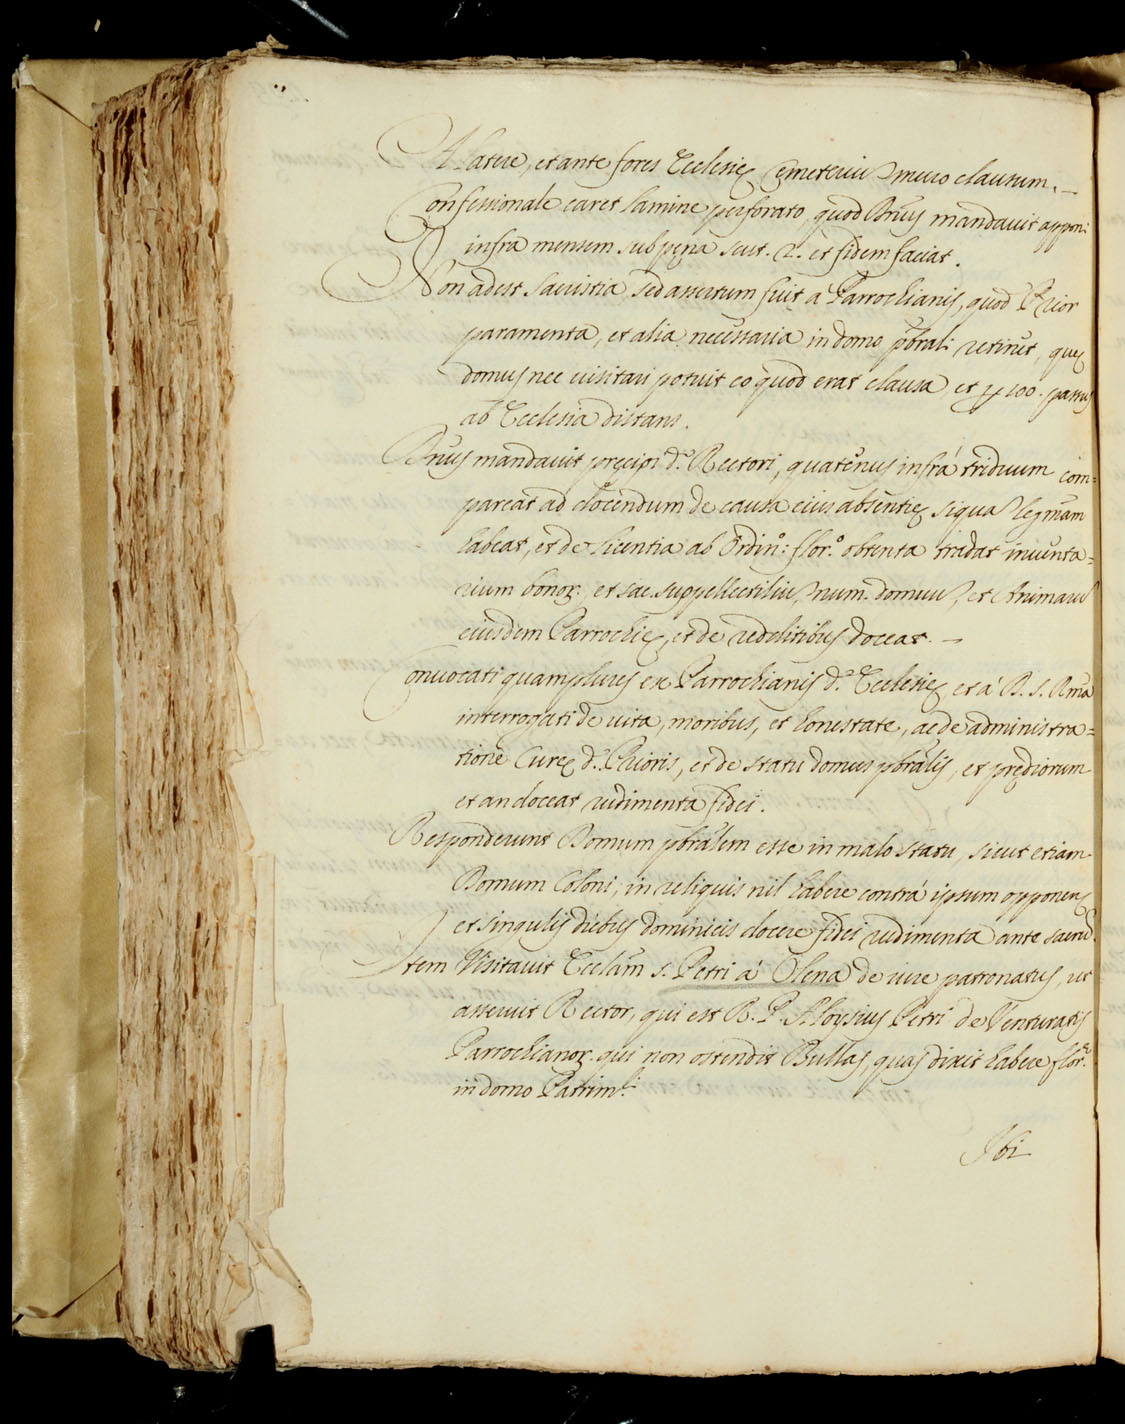 A latere, et ante fores Ecclesię cęmeteriũ muro clausum. –
Confessionale caret lamine perforato, quod Dnũs mandavit apponi
infra mensem sub pęna scut. 2. et fidem faciat.
Non adest sacristia sed assertum fuit a Parrochianis, quod Prior
paramenta, et alia necessaria in domo pbrãli retinet, quę
domus nec visitari potuit eo quod erat clausa et p 100. passus
ab Ecclesia distans.
Dnũs mandavit pręcipi d.º Rectori, quatenus infrà triduum com=
pareat ad docendum de causa eius absentię siqua legmãm
habeat, et de licentia ab Ordin.º: flor.º obtenta tradat inventa=
rium bonor. et sac. suppellectiliũ, num. domuũ, et Animarũ
eiusdem Parrochię, et de redditibus doceat. –
Convocati quamplures ex Parrochianis d.ę Ecclesię et à D. S. Rma
interrogati de vita, moribus, et honestate, ac de administra=
tione Curę d.i Prioris, et de statu domus pbrãlis, et prędiorum
et an doceat rudimenta fidei.
Responderunt Domum pbrãlem esse in malo statu, sicut etiam
Domum Coloni, in reliquis nil habere contrà ipsum opponenę
et singulis diebus dominicis docere fidei rudimenta ante sacrũ.
Item Visitavit Ecclãm s. Petri à Olena de iure patronatus, ut
asseruit Rector, qui est R. P. Aloysius Petri de Venturatis
Parrochianor. qui non ostendit Bullas, quas dixit habere flor.ę
in domo Patrim.li
Ibi